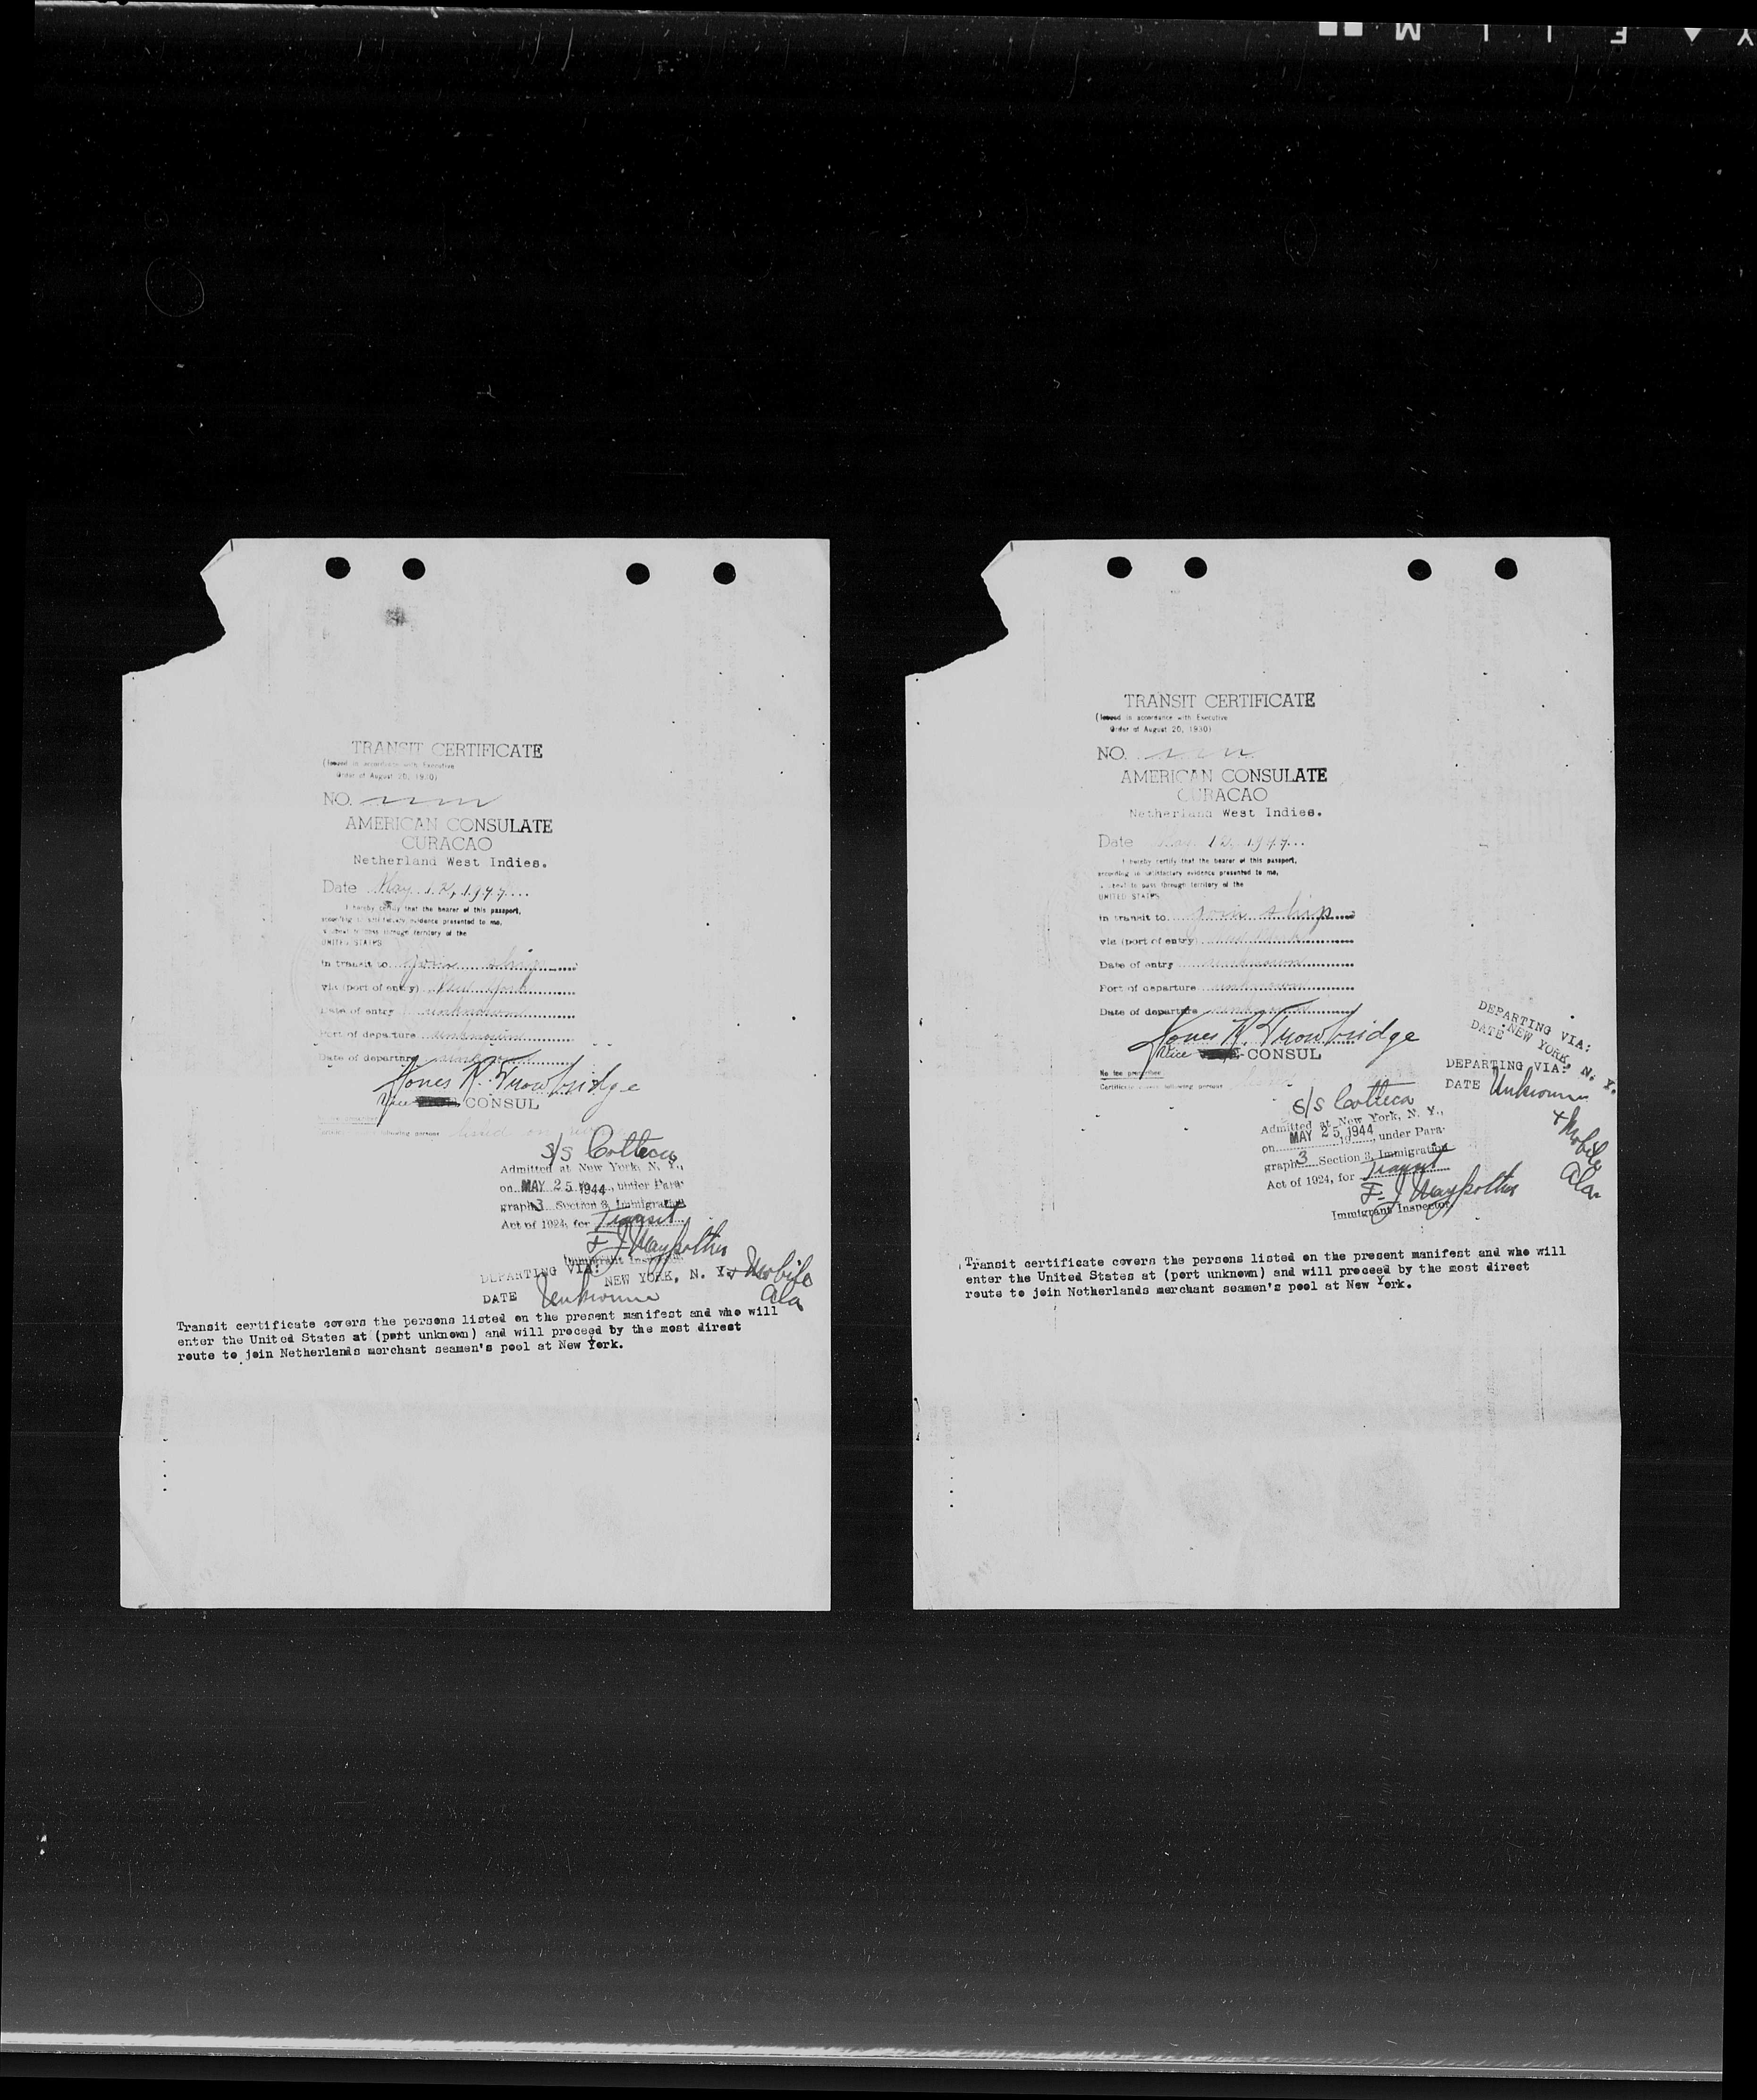 TRANSIT CERTIFICATE
(Issued in accordance with Executive
Order of August 20, 1930)
NO.
AMERICAN CONSULATE
CURACAO
Netherland West Indies.
Date May 12, 1944
I hereby certify that the bearer of this passport,
according to satisfactory evidence presented to me,
is about to pass through territory of the
UNITED STATES
in transit to join ship
via (port of entry) New York
Date of entry unknown
Port of departure unknown
Date of departure unknown
Jones R. Trowbridge
Vice CONSUL
following persons listed on
S/S Cottica
Admitted at New York, N. Y.,
on MAY 25 1944, under Para-
graph 3 Section 3, Immigration
Act of 1924, for Transit
Immigrant Inspector
DEPARTING VIA:
NEW YORK, N. Y. + Mobile
Ala
DATE Unknown
Transit certificate covers the persons listed on the present manifest and who will
enter the United States at (port unknown) and will proceed by the most direct
route to join Netherlands merchant seamen's pool at New York.
TRANSIT CERTIFICATE
(Issued in accordance with Executive
Order of August 20, 1930)
NO.
AMERICAN CONSULATE
CURACAO
Netherland West Indies.
Date May 12, 1944
I hereby certify that the bearer of this passport,
according to satisfactory evidence presented to me,
is about to pass through territory of the
UNITED STATES
in transit to join ship
via (port of entry) New York
Date of entry unknown
Port of departure unknown
Date of departure unknown
Jones R. Trowbridge
Vice CONSUL
No fee prescribed
Certificate following persons
DEPARTING VIA:
NEW YORK, N. Y.
DATE
DEPARTING VIA:
DATE Unknown
+ Mobile
Ala.
S/S Cottica
Admitted at New York, N. Y.,
on MAY 25 1944, under Para-
graph 3 Section 3, Immigration
Act of 1924, for Transit
Immigrant Inspector.
Transit certificate covers the persons listed on the present manifest and who will
enter the United States at (port unknown) and will proceed by the most direct
route to join Netherlands merchant seamen's pool at New York.